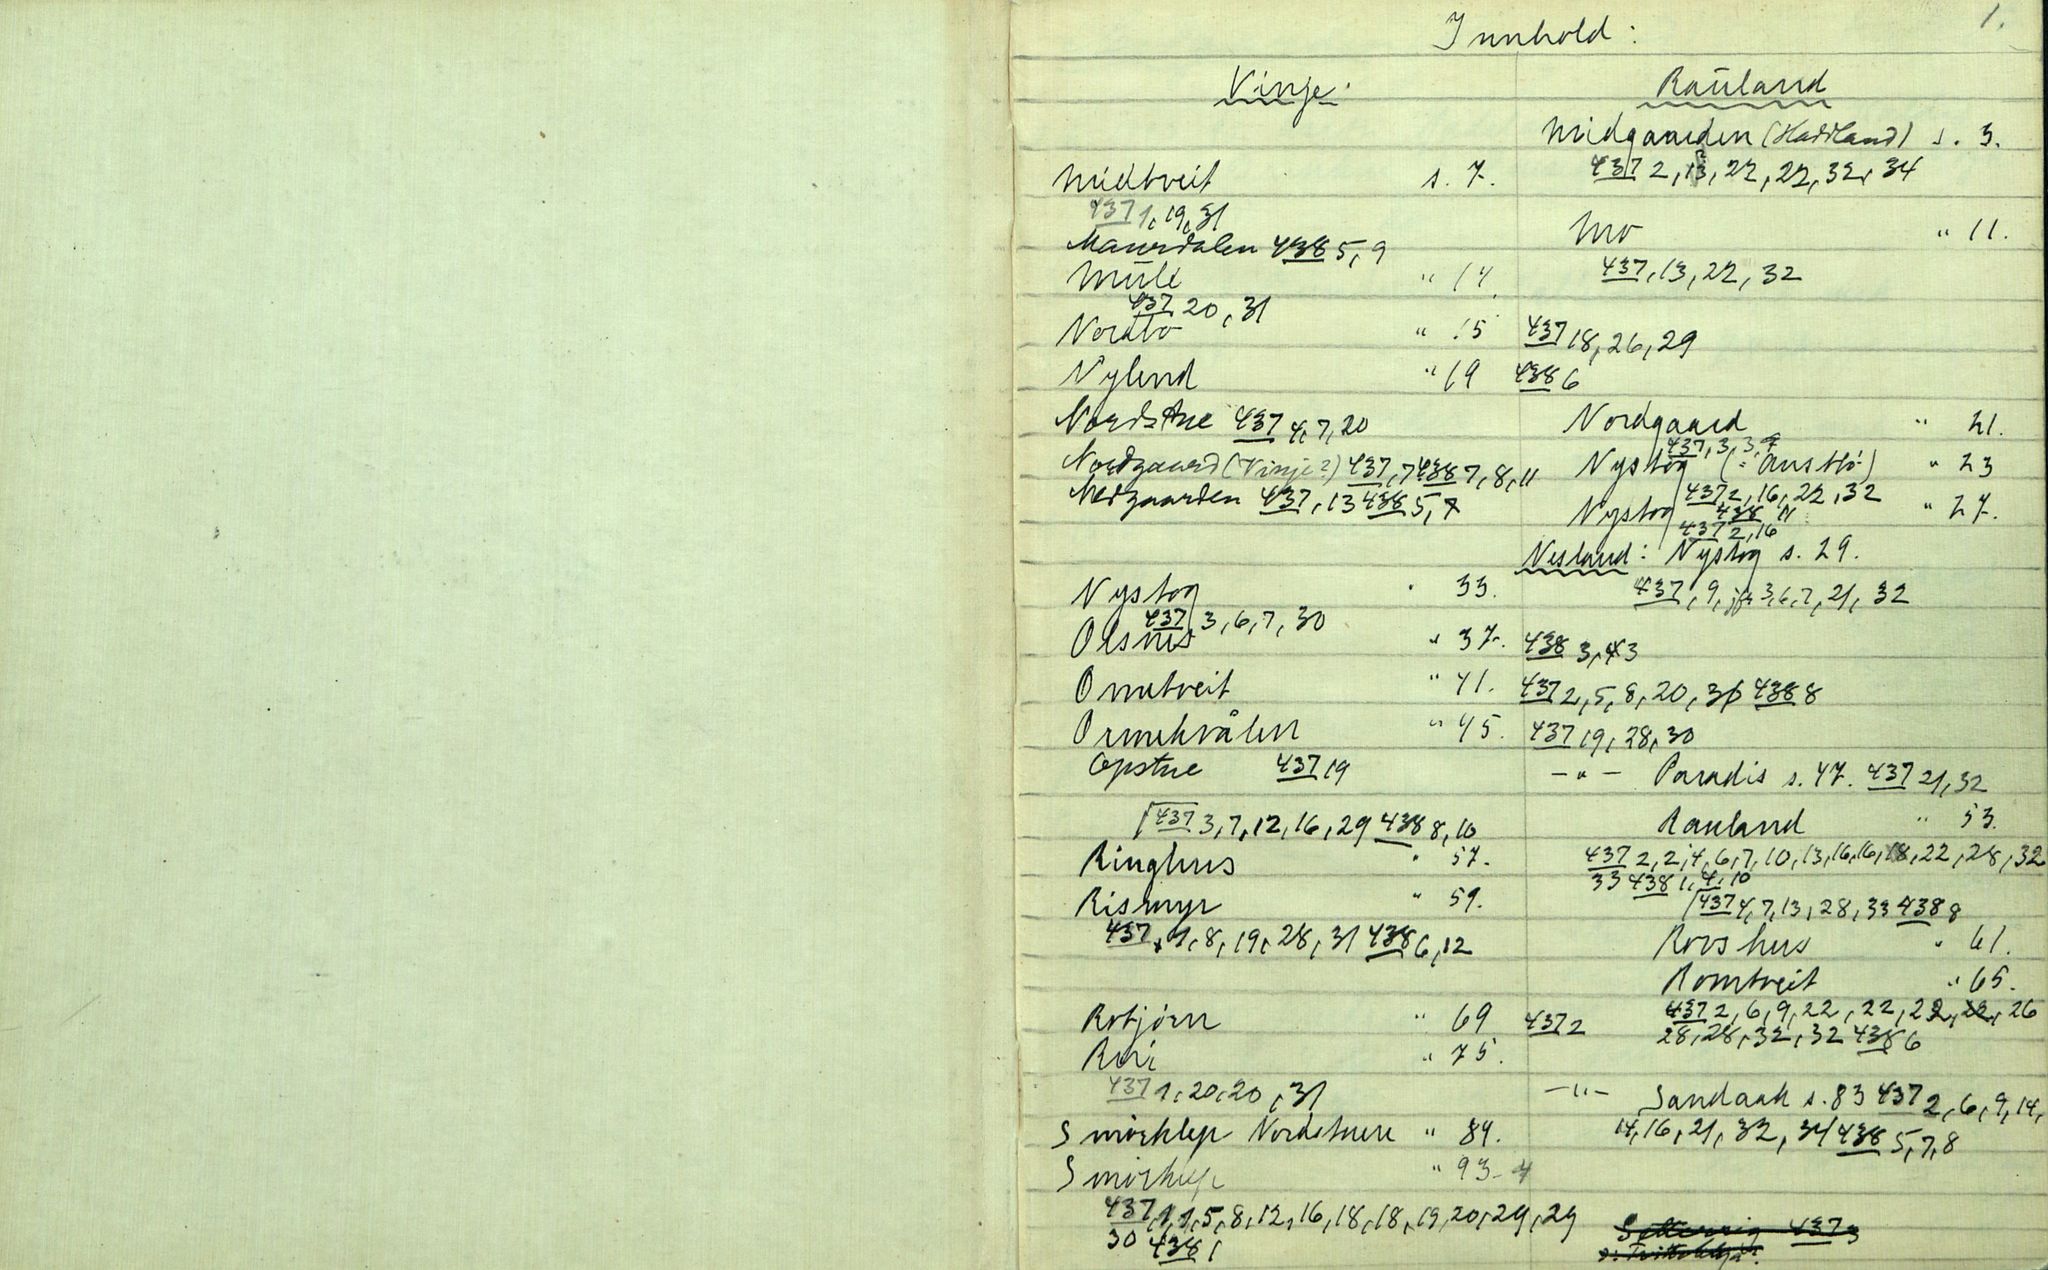 1.
Innhold:
Vinje: Rauland
Midgaarden (Haddland) s. 3.
Midtveit s. 7. 437 2, 13, 22, 22, 32, 34
437 1, 19, 31 Mo " 11.
Maurdalen 438 5, 9
Mule " 14. 437, 13, 22, 32
437 20, 31
Nordbø " 15 437 18, 26, 29
Nylend " 19 438 6
Nordstue 437 4, 7, 20 Nordgaard " 21.
437, 3, 3,
Nordgaard (Vinje?) 437, 7 438 7, 8, 11 Nystog " 23
Nedgaarden 437, 13 438 5, 7 437 2, 16, 22, 32
Nystog " 27.
438 11
437 2, 16
Nesland: Nystog s. 29.
Nystog " 33. 437, 9, jfr 3, 6, 7, 21, 32
437 3, 6, 7, 30
Olsnes " 37. 438 3, 3
Omtveit " 41. 437 2, 5, 8, 20, 438 8
Ormekvålen " 45. 437 19, 28, 30
Opstue 437 19 — " — Paradis s. 47. 437 21, 32
437 3, 7, 12, 16, 29 438 8, 10 Rauland " 53.
Ringhus " 57. 437 2, 2, 4, 6, 7, 10, 13, 16, 16, 18, 22, 28, 32
33 438 1, 4, 10
Rismyr " 59. 437 4, 7, 13, 28, 33 438 8
437 1, 8, 19, 28, 31 438 6, 12 Rooshus " 61.
Romtveit " 65.
Rotjørn " 69 437 2 437 2, 6, 9, 22, 22, 22, 22, 26
28, 28, 32, 32 438 6
Rui " 75.
437 1, 20, 20, 31 — " — Sandaak s. 83 437 2, 6, 9, 14,
Smörklep Nordstuen " 89. 14, 16, 21, 32, 34 438 5, 7, 8
Smörklep " 93-4
437, 1, 1, 5, 8, 12, 16, 18, 18, 19, 20, 29, 29
30 438 1 437 3